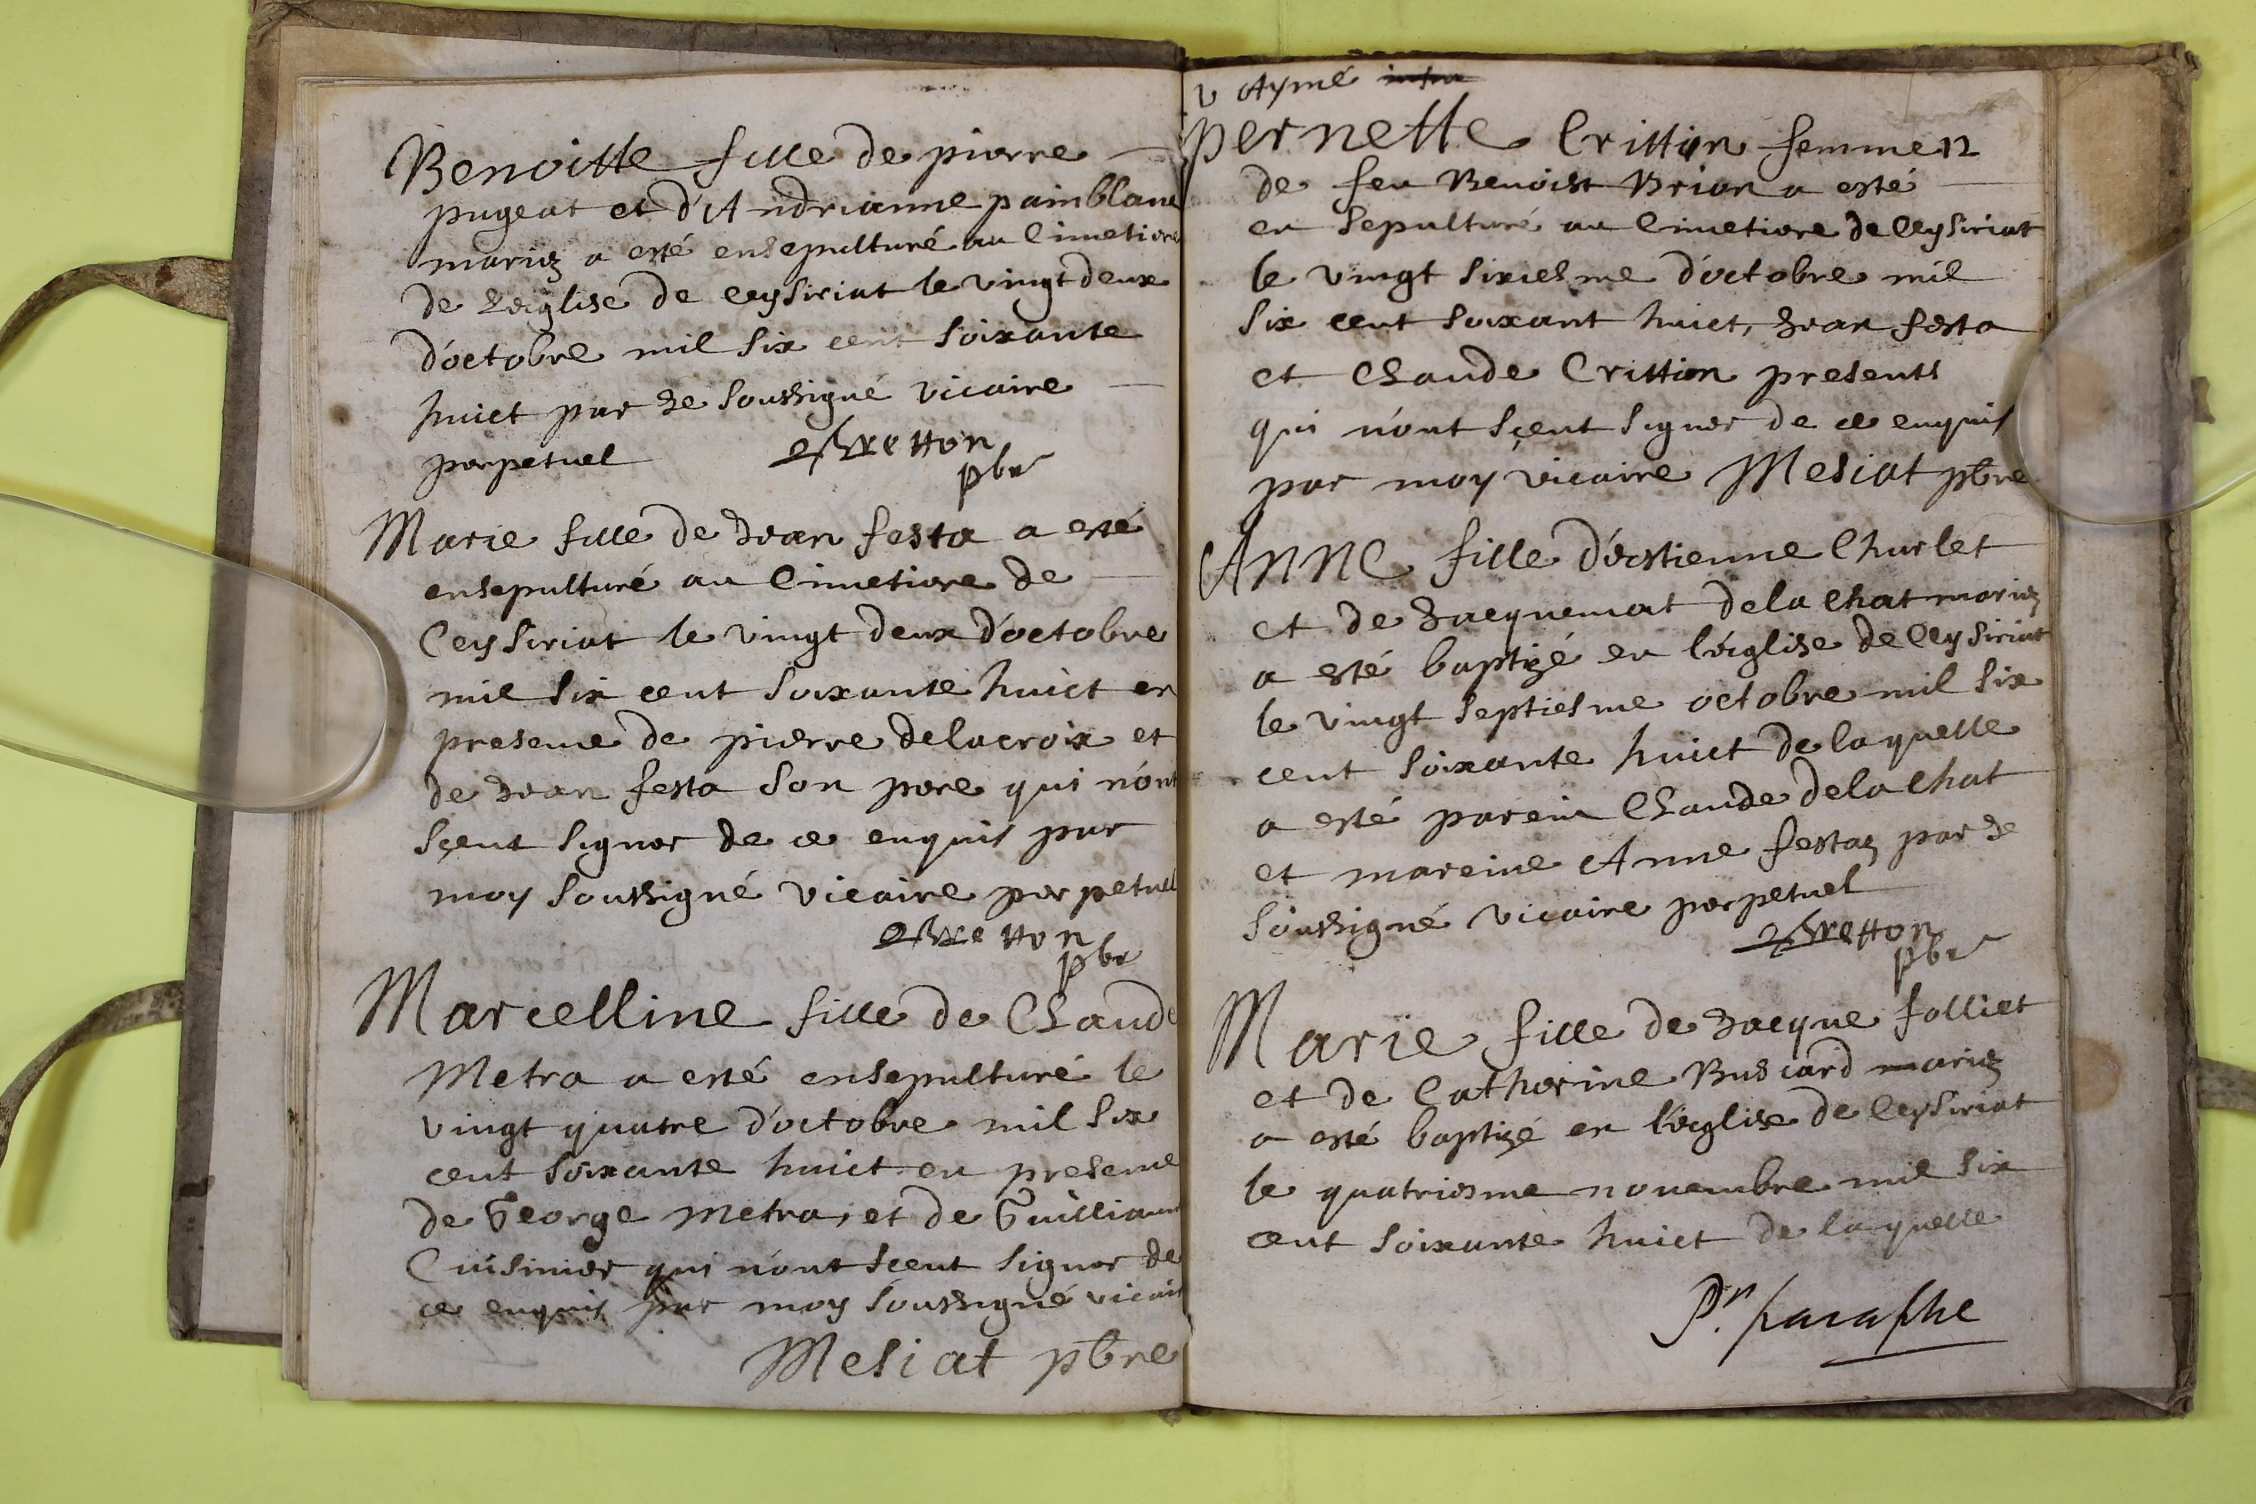 Benoitte fille de pierre
pugeat et d'Andrianne painblanc
mariez a esté ensepulturé au Cimetiere
de l'eglise de Ceysiriat le vingt deux
d'octobre mil six cent soixante
huict par Je soussigné vicaire
perpetuel Bretton
pbr
Marie fille de Jean festa a esté
ensepulturé au Cimetiere de
Ceysiriat le vingt deux d'octobre
mil six cent soixante huict en
presence de pierre delacroix et
de Jean festa son pere qui n'ont
sçeut signer de ce enquis par
moy soussigné vicaire perpetuel
Bretton
pbr
Marcelline fille de Claude
Metra a esté ensepulturé le
vingt quatre d'octobre mil six
cent soixante huict en presence
de George Metra, et de Guilliaume
Cuisinier qui n'ont sçeut signer de
ce enquis par moy soussigné vicaire
Mesiat pbre
v Aymé
pernette Crittion femme
de feu Benoist Brian a esté
en sepulturé au Cimetiere de Ceysiriat
le vingt sixiesme d'octobre mil
six cent soixant huict, Jean festa
et Claude Crittion presents
qui n'ont sçeut signer de ce enquis
par moy vicaire Mesiat pbre
Anne fille d'estienne Charlet
et de Jacquemat dela Chat mariez
a esté baptizé en l'eglise de Ceysiriat
le vingt septiesme octobre mil six
cent soixante huict de laquelle
a esté parein Claude dela Chat
et mareine Anne festaz par Je
soussigné vicaire perpetuel
Bretton
pbr
Marie fille de Jacque folliet
et de Catherine Busiard mariez
a esté baptizé en l'eglise de Ceysiriat
le quatriesme nouembre mil six
cent soixante huict de laquelle
Pr. paraphe